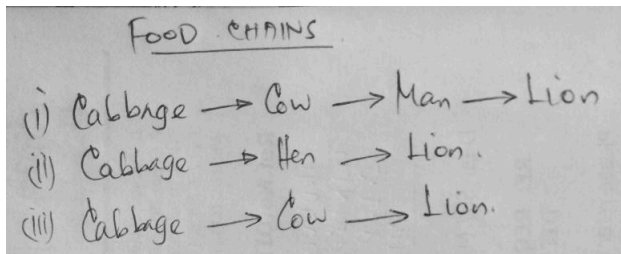 FOOD CHAINS
(i) Cabbage → Cow → Man → Lion
(ii) Cabbage → Hen → Lion.
(iii) Cabbage → Cow → Lion.